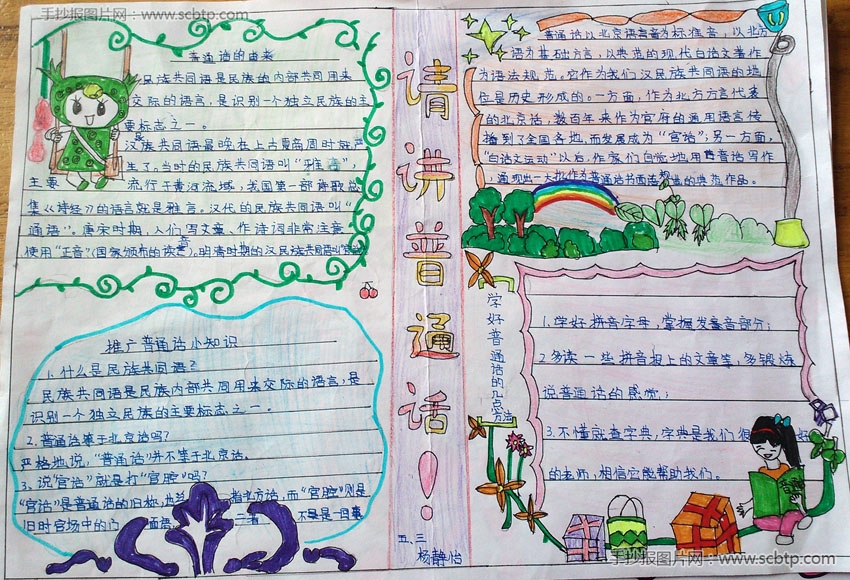 手抄报图片网-www.scbtp.com
普通话的由来
民族共同语是民族的内部共同用来
交际的语言,是识别一个独立民族的主
要标志之一。
汉族共同语最晚在上古夏商周时就产
生了,当时的民族共同语叫“雅言”,
主要流行于黄河流域,我国第一部诗歌总
集《诗经》的语言就是雅言。汉代的民族共同语叫“
通语”。唐宋时期,人们写文章、作诗词非常注意
使用“正音”(国家颁布的读音),明清时期的汉民族共同语叫
推广普通话小知识
1.什么是民族共同语?
民族共同语是民族内部共同用来交际的语言,是
识别一个独立民族的主要标志之一。
2.普通话等于北京话吗?
严格地说,“普通话”并不等于北京话。
3.说“官话”就是打“官腔”吗?
“官话”是普通话的旧称,指北方话,而“官腔”则是
旧时官场中的
请讲普通话!
五、三
杨静怡
普通话以北京语音为标准音,以北方
话为基础方言,以典范的现代白话文著作
为语法规范。它作为我们汉民族共同语的地
位是历史形成的。一方面,作为北方方言代表
的北京话,数百年来作为官府的通用语言传
播到了全国各地,而发展成为“官话”;另一方面,
“白话文运动”以后,作家们自觉地用普音话写作
,涌现出一大批作为普通话书面语规范的典范作品。
学好普通话的几点方法
1.学好拼音字母,掌握发音部分;
2.多读一些拼音报上的文章等,多锻炼
说普通话的感觉;
3.不懂就查字典,字典是我们很好
的老师,相信它能帮助我们。
手抄报图片网-www.scbtp.com